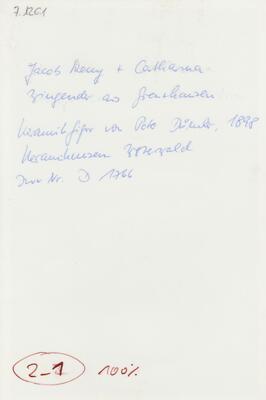 7.1201
Jacob Remy + Catharina
Zingender aus Grenzhausen
Keramikfigur von Peter Dümler, 1898
Keramikmuseum Westerwald
Inv Nr. D 1766
2-1 100%